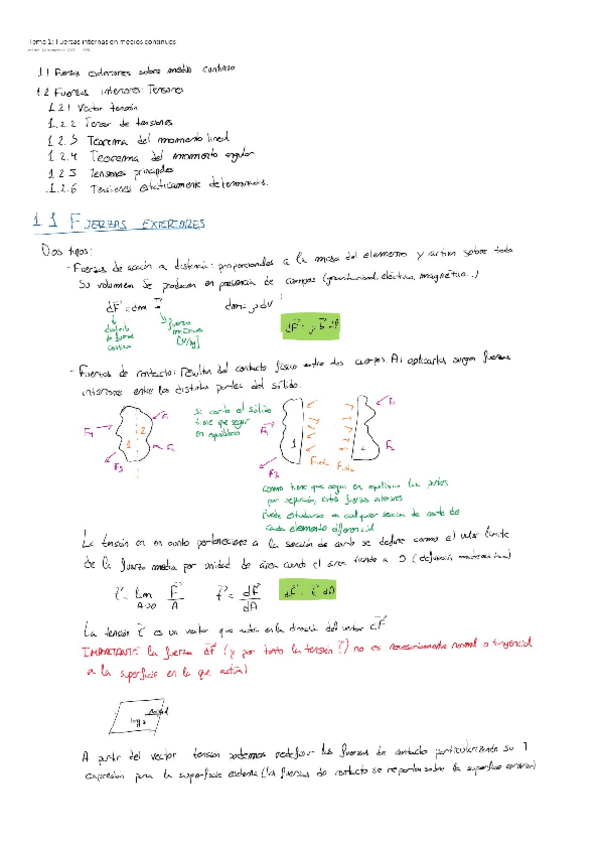 Tema 1: Fuerzas internas en medios continuos
1.1 Fuerzas exteriores sobre medio continuo
1.2 Fuerzas interiores: Tensiones
1.2.1 Vector tensión
1.2.2 Tensor de tensiones
1.2.3 Teorema del momento lineal
1.2.4 Teorema del momento angular
1.2.5 Tensiones principales
1.2.6 Tensiones estáticamente determinadas.
1.1 FUERZAS EXTERIORES
Dos tipos:
- Fuerzas de acción a distancia: proporcionales a la masa del elemento y actúan sobre todo
su volumen. Se producen en presencia de campos (gravitacional, eléctrico, magnético...)
dF = dm
dm = ρ dV
dF = ρ b dV
fuerza
[N/kg]
- Fuerzas de contacto: resultan del contacto físico entre dos cuerpos. Al aplicarlas surgen fuerzas
interiores entre las distintas partes del sólido.
si corto el sólido
tiene que seguir
en equilibrio
F₁
F₃
1
2
F₁
F₃
1
como tiene que seguir en equilibrio las partes
por separado, estas fuerzas interiores
Puede estudiarse en cualquier sección de corte de
cada elemento diferencial
La tensión en un punto perteneciente a la sección de corte se define como el valor límite
de la fuerza media por unidad de área cuando el área tiende a 0 (definición matemática)
t = lim A→0 F/A
t = dF/dA
dF = t dA
La tensión t es un vector que actúa en la dirección del vector dF
IMPORTANTE: la fuerza dF (y por tanto la tensión t) no es necesariamente normal o tangencial
a la superficie en la que actúa!
A partir del vector tensión podemos redefinir las fuerzas de contacto particularizando su
expresión para la superficie externa (las fuerzas de contacto se reparten sobre la superficie exterior)